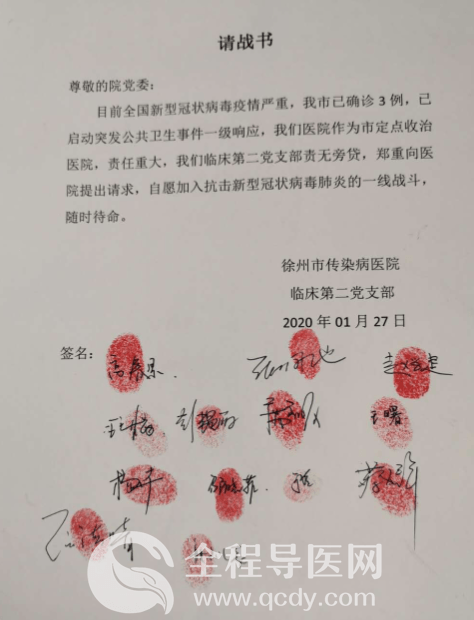 请战书
尊敬的院党委：
目前全国新型冠状病毒疫情严重，我市已确诊 3 例，已
启动突发公共卫生事件一级响应，我们医院作为市定点收治
医院，责任重大，我们临床第二党支部责无旁贷，郑重向医
院提出请求，自愿加入抗击新型冠状病毒肺炎的一线战斗，
随时待命。
徐州市传染病医院
临床第二党支部
2020 年 01 月 27 日
签名：
王曙
全程导医网
www.qcdy.com